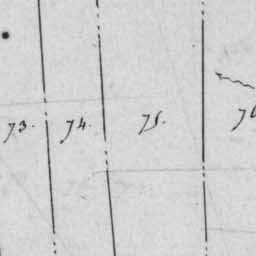 73. 74. 75. 76